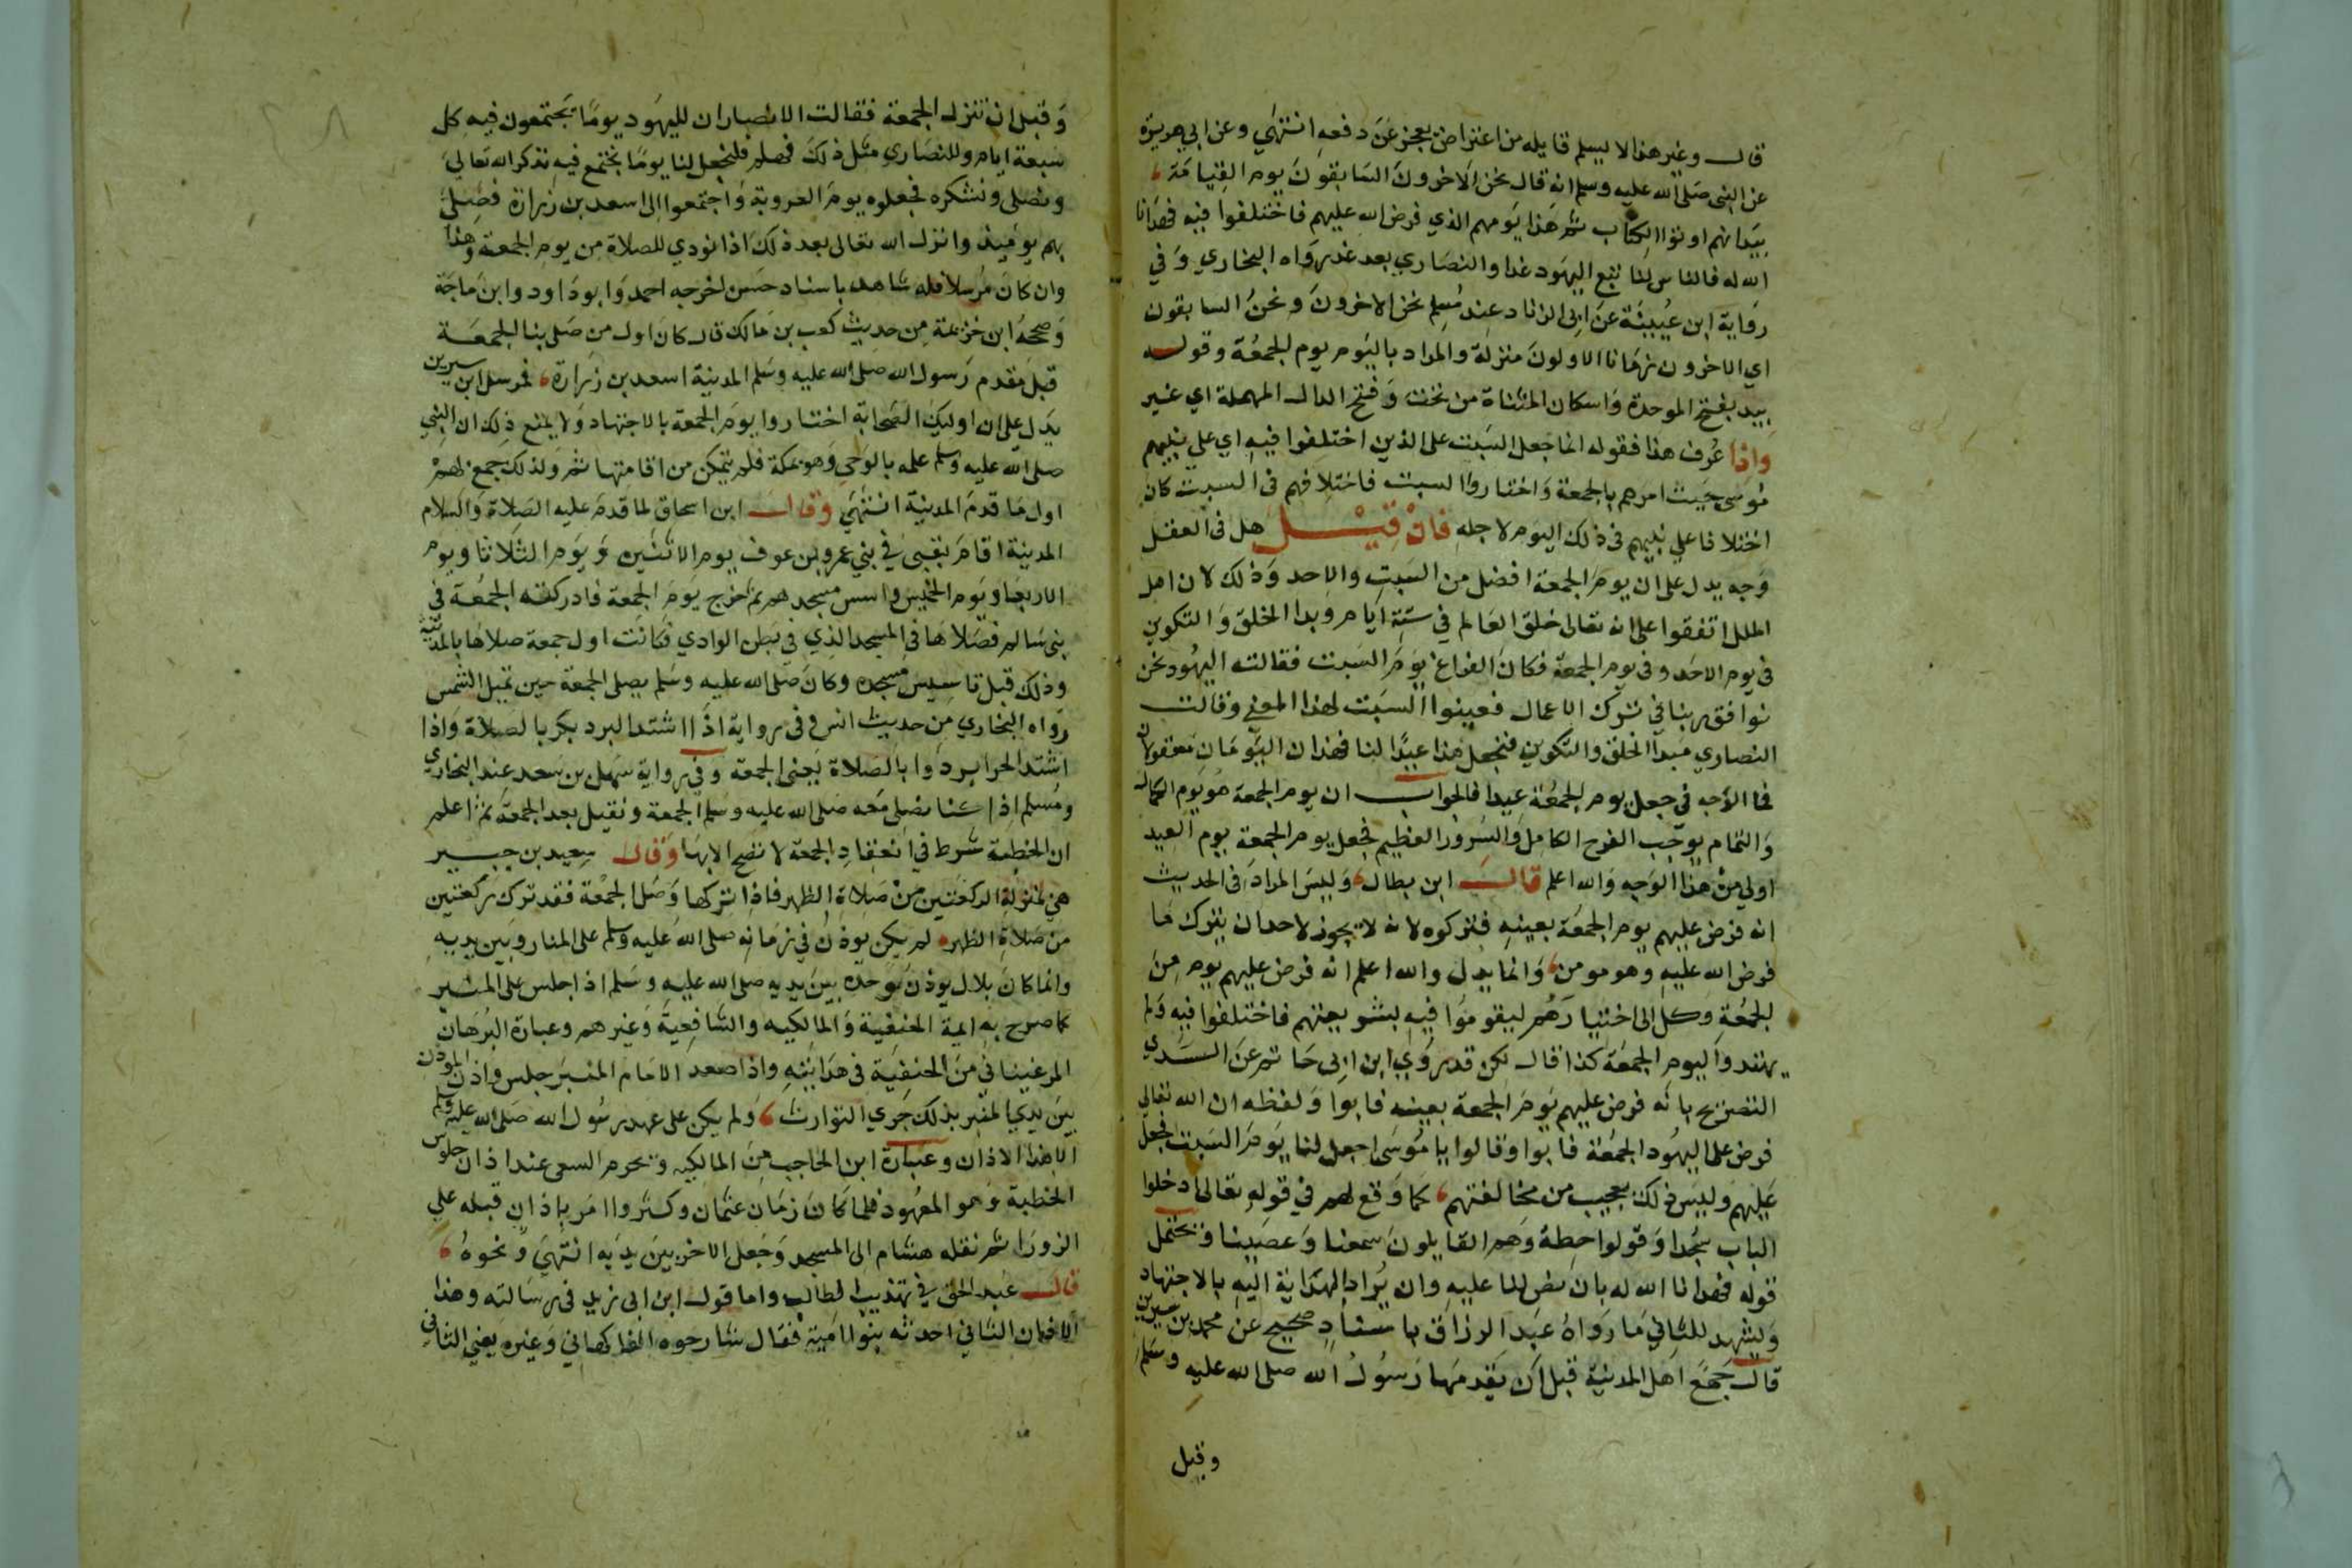 قال وغير هذا لا يسلم قايله من اعتراض يعجز عن دفعه انتهي وعن ابي هريرة
عن النبي صلي الله عليه وسلم انه قال نحن الاخرون السابقون يوم القيامة
بيد انهم اوتوا الكتاب ثم هذا يومهم الذي فرض الله عليهم فاختلفوا فيه فهدانا
الله له فالناس لنا تبع اليهود غدا والنصاري بعد غد رواه البخاري وفي
رواية ابن عيينة عن ابي الزناد عند مسلم نحن الاخرون ونحن السابقون
اي الاخرون زمانا الاولون منزلة والمراد باليوم يوم الجمعة وقوله
بيد بفتح الموحدة واسكان المثناة من تحت وفتح الدال المهملة اي غير
واذا عرف هذا فقوله انما جعل السبت على الذين اختلفوا فيه اي علي نبيهم
موسى حيث امرهم بالجمعة واختاروا السبت فاختلافهم في السبت كان
اختلافا علي نبيهم في ذلك اليوم لاجله فان قيل هل في العقل
وجه يدل على ان يوم الجمعة افضل من السبت والاحد وذلك لان اهل
الملل اتفقوا على انه تعالى خلق العالم في ستة ايام وبدا الخلق والتكوين
في يوم الاحد وفي يوم الجمعة فكان الفراغ يوم السبت فقالت اليهود نحن
نوافق ربنا في ترك الاعمال فعينوا السبت لهذا المعني وقالت
النصاري مبدا الخلق والتكوين فنجعل هذا عيدا لنا فهذان اليومان معقولان
فما الاجه في جعل يوم الجمعة عيدا فالجواب ان يوم الجمعة هو يوم الكمال
والتمام يوجب الفرح الكامل والسرور العظيم فجعل يوم الجمعة يوم العيد
اولي من هذا الوجه والله اعلم قال ابن بطال وليس المراد في الحديث
انه فرض عليهم يوم الجمعة بعينه فتركوه لانه لا يجوز لاحد ان يترك ما
فرض الله عليه وهو مومن وانما يدل والله اعلم انه فرض عليهم يوم من
الجمعة وكل الى اختيارهم ليقوموا فيه بشريعتهم فاختلفوا فيه ولم
يهتدوا ليوم الجمعة كذا قال لكن قد روي ابن ابي حاتم عن السدي
التصريح بانه فرض عليهم يوم الجمعة بعينه فابوا ولفظه ان الله تعالي
فرض على اليهود الجمعة فابوا وقالوا يا موسى اجعل لنا يوم السبت فجعل
عليهم وليس ذلك بعجيب من مخالفتهم كما وقع لهم في قوله تعالى ادخلوا
الباب سجدا وقولوا حطة وهم القايلون سمعنا وعصينا ويحتمل
قوله فهدانا الله له بان نص لنا عليه وان يراد الهداية اليه بالاجتهاد
ويشهد للثاني ما رواه عبد الرزاق باسناد صحيح عن محمد بن سيرين
قال جمع اهل المدينة قبل ان يقدمها رسول الله صلى الله عليه وسلم
وقبل
وقبل ان تنزل الجمعة فقالت الانصار ان لليهود يوما يجتمعون فيه كل
سبعة ايام وللنصاري مثل ذلك فهلم فلنجعل لنا يوما نجتمع فيه نذكر الله تعالي
ونصلى ونشكره فجعلوه يوم العروبة واجتمعوا الى اسعد بن زرارة فصلي
بهم يوميذ وانزل الله تعالى بعد ذلك اذا نودي للصلاة من يوم الجمعة وهذا
وان كان مرسلا فله شاهد باسناد حسن اخرجه احمد وابو داود وابن ماجة
وصححه ابن خزيمة من حديث كعب بن مالك قال كان اول من صلى بنا الجمعة
قبل مقدم رسول الله صلى الله عليه وسلم المدينة اسعد بن زرارة فمرسل ابن سيرين
يدل على ان اوليك الصحابة اختاروا يوم الجمعة بالاجتهاد ولا يمنع ذلك ان النبي
صلى الله عليه وسلم علمه بالوحي وهو بمكة فلم يتمكن من اقامتها ثم ولذلك جمع لهم
اول ما قدم المدينة انتهي وقال ابن اسحاق لما قدم عليه الصلاة والسلام
المدينة اقام بقبى في بني عمرو بن عوف يوم الاثنين ويوم الثلاثا ويوم
الاربعا ويوم الخميس واسس مسجدهم ثم خرج يوم الجمعة فادركته الجمعة في
بني سالم فصلاها في المسجد الذي في بطن الوادي فكانت اول جمعة صلاها بالمدينة
وذلك قبل تاسيس مسجده وكان صلى الله عليه وسلم يصلى الجمعة حين تميل الشمس
رواه البخاري من حديث انس وفي رواية اذا اشتد البرد بكر بالصلاة واذا
اشتد الحر ابردوا بالصلاة يعني الجمعة وفي رواية سهل بن سعد عند البخاري
ومسلم اذا كنا نصلي معه صلى الله عليه وسلم الجمعة ونقيل بعد الجمعة ثم اعلم
ان الخطبة شرط في انعقاد الجمعة لا تصح الا بها وقال سعيد بن جبير
هي بمنزلة الركعتين من صلاة الظهر فاذا تركها وصلى الجمعة فقد ترك ركعتين
من صلاة الظهر لم يكن يوذن في زمانه صلى الله عليه وسلم على المنار وبين يديه
وانما كان بلال يوذن وحده بين يديه صلى الله عليه وسلم اذا جلس على المنبر
كما صرح به ايمة الحنفية والمالكيه والشافعية وغيرهم وعبارة البرهان
المرغيناني من الحنفية في هدايته واذا صعد الامام المنبر جلس واذن الموذن
بين يدي المنبر بذلك جري التوارث ولم يكن على عهد رسول الله صلى الله عليه وسلم
الا هذا الاذان وعبارة ابن الحاجب من المالكيه ويحرم السعي عند اذان جلوس
الخطبة وهو المعهود فلما كان زمان عثمان وكثروا امر باذان قبله علي
الزورا ثم نقله هشام الى المسجد وجعل الاخر بين يديه انتهي ونحوه
قال عبد الحق في تهذيب الطالب واما قول ابن ابي زيد في رسالته وهذا
الاذان الثاني احدثه بنوا امية فقال شارحوه الفاكهاني وغيره يعني الثاني